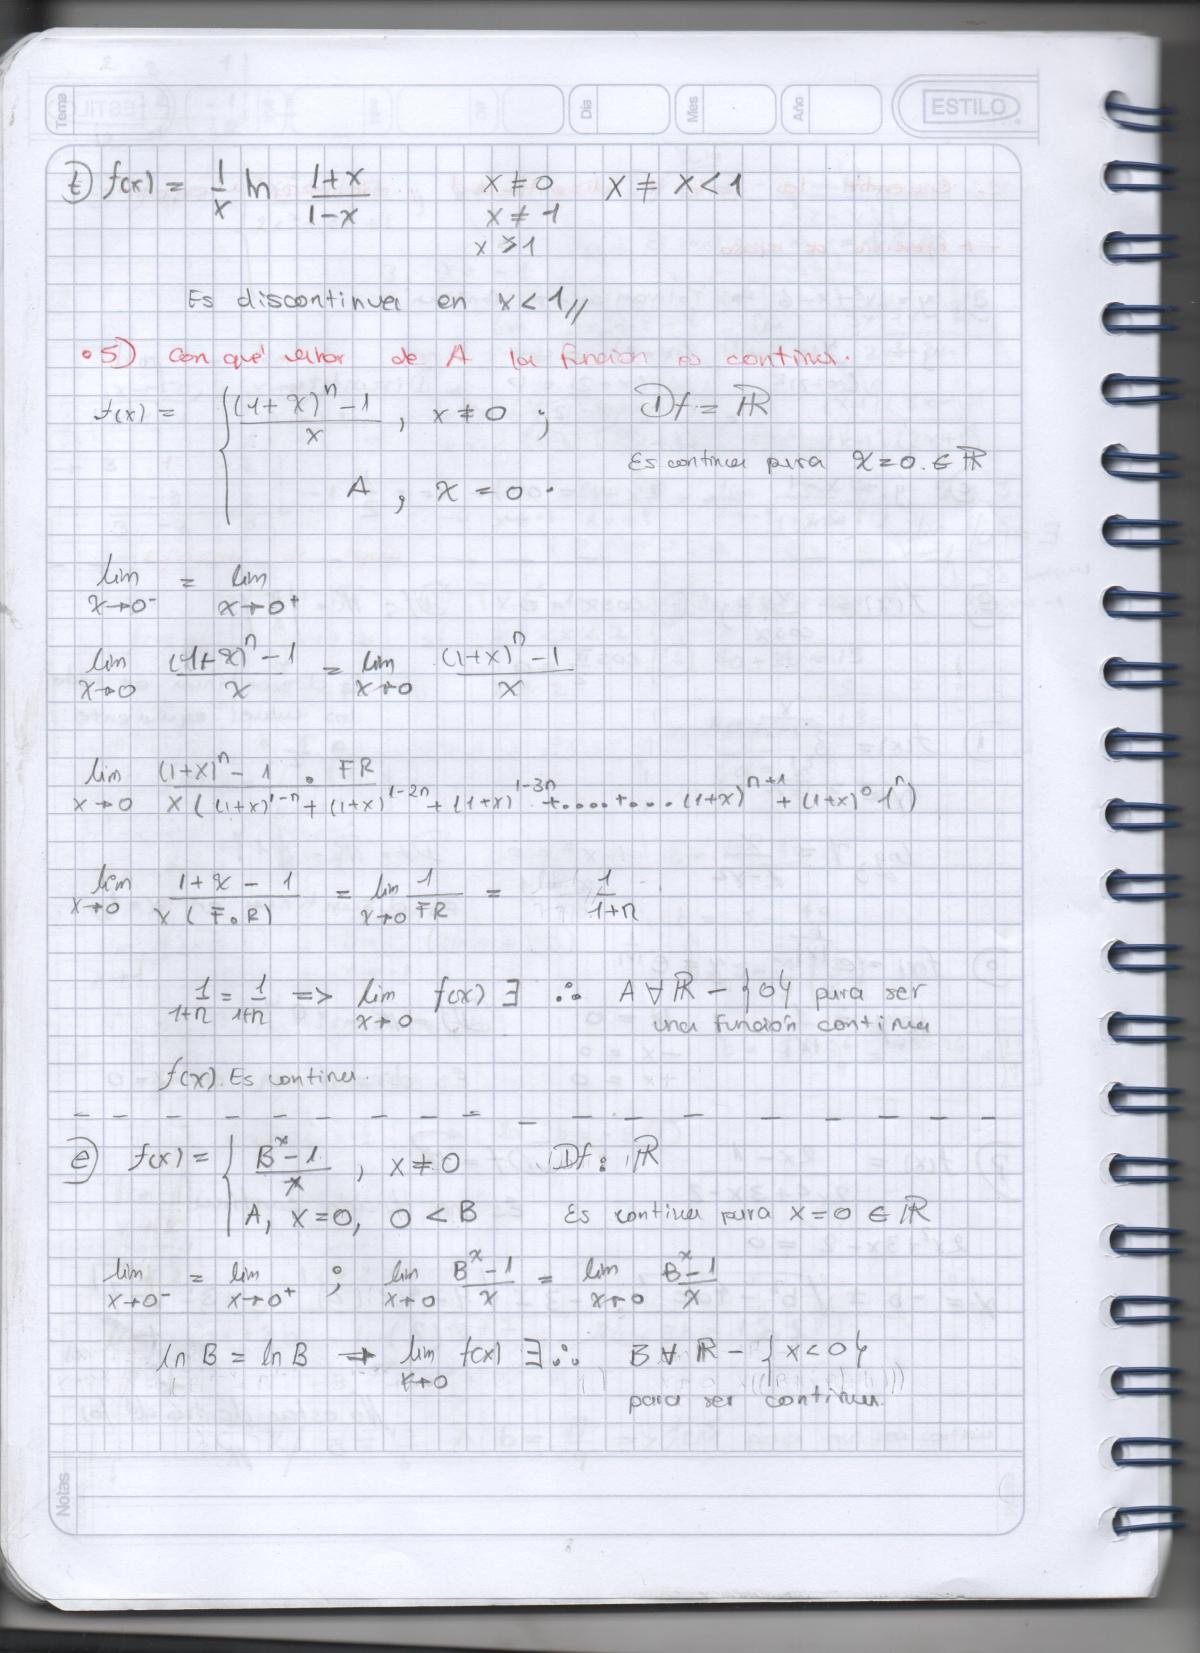 Tema Día Mes Año ESTILO
t) f(x) = 1/x ln (1+x)/(1-x)    x ≠ 0    x ≠ x < 1
x ≠ -1
x ≥ 1
Es discontinua en x < 1 //
• 5) Con qué valor de A la función es continua.
f(x) = { ((1+x)^n - 1)/x , x ≠ 0 ;    Df = ℝ
Es continua para x = 0 ∈ ℝ
A , x = 0 .
lim x→0⁻ = lim x→0⁺
lim x→0 ((1+x)^n - 1)/x = lim x→0 ((1+x)^n - 1)/x
lim x→0 ((1+x)^n - 1 . FR)/(x((1+x)^(1-n) + (1+x)^(1-2n) + (1+x)^(1-3n) + .... + ... (1+x)^(n+1) + (1+x)^0 1^n)
lim x→0 (1+x-1)/(x(F.R)) = lim x→0 1/FR = 1/(1+n)
1/(1+n) = 1/(1+n) => lim x→0 f(x) ∃ ∴ A ∀ ℝ - {0} para ser
una función continua
f(x) Es continua.
e) f(x) = { (B^x - 1)/x , x ≠ 0    Df : ℝ
A, x = 0, 0 < B    Es continua para x = 0 ∈ ℝ
lim x→0⁻ = lim x→0⁺ ; lim x→0 (B^x - 1)/x = lim x→0 (B^x - 1)/x
ln B = ln B → lim x→0 f(x) ∃ ∴ B ∀ ℝ - {x < 0}
para ser continua.
Notas